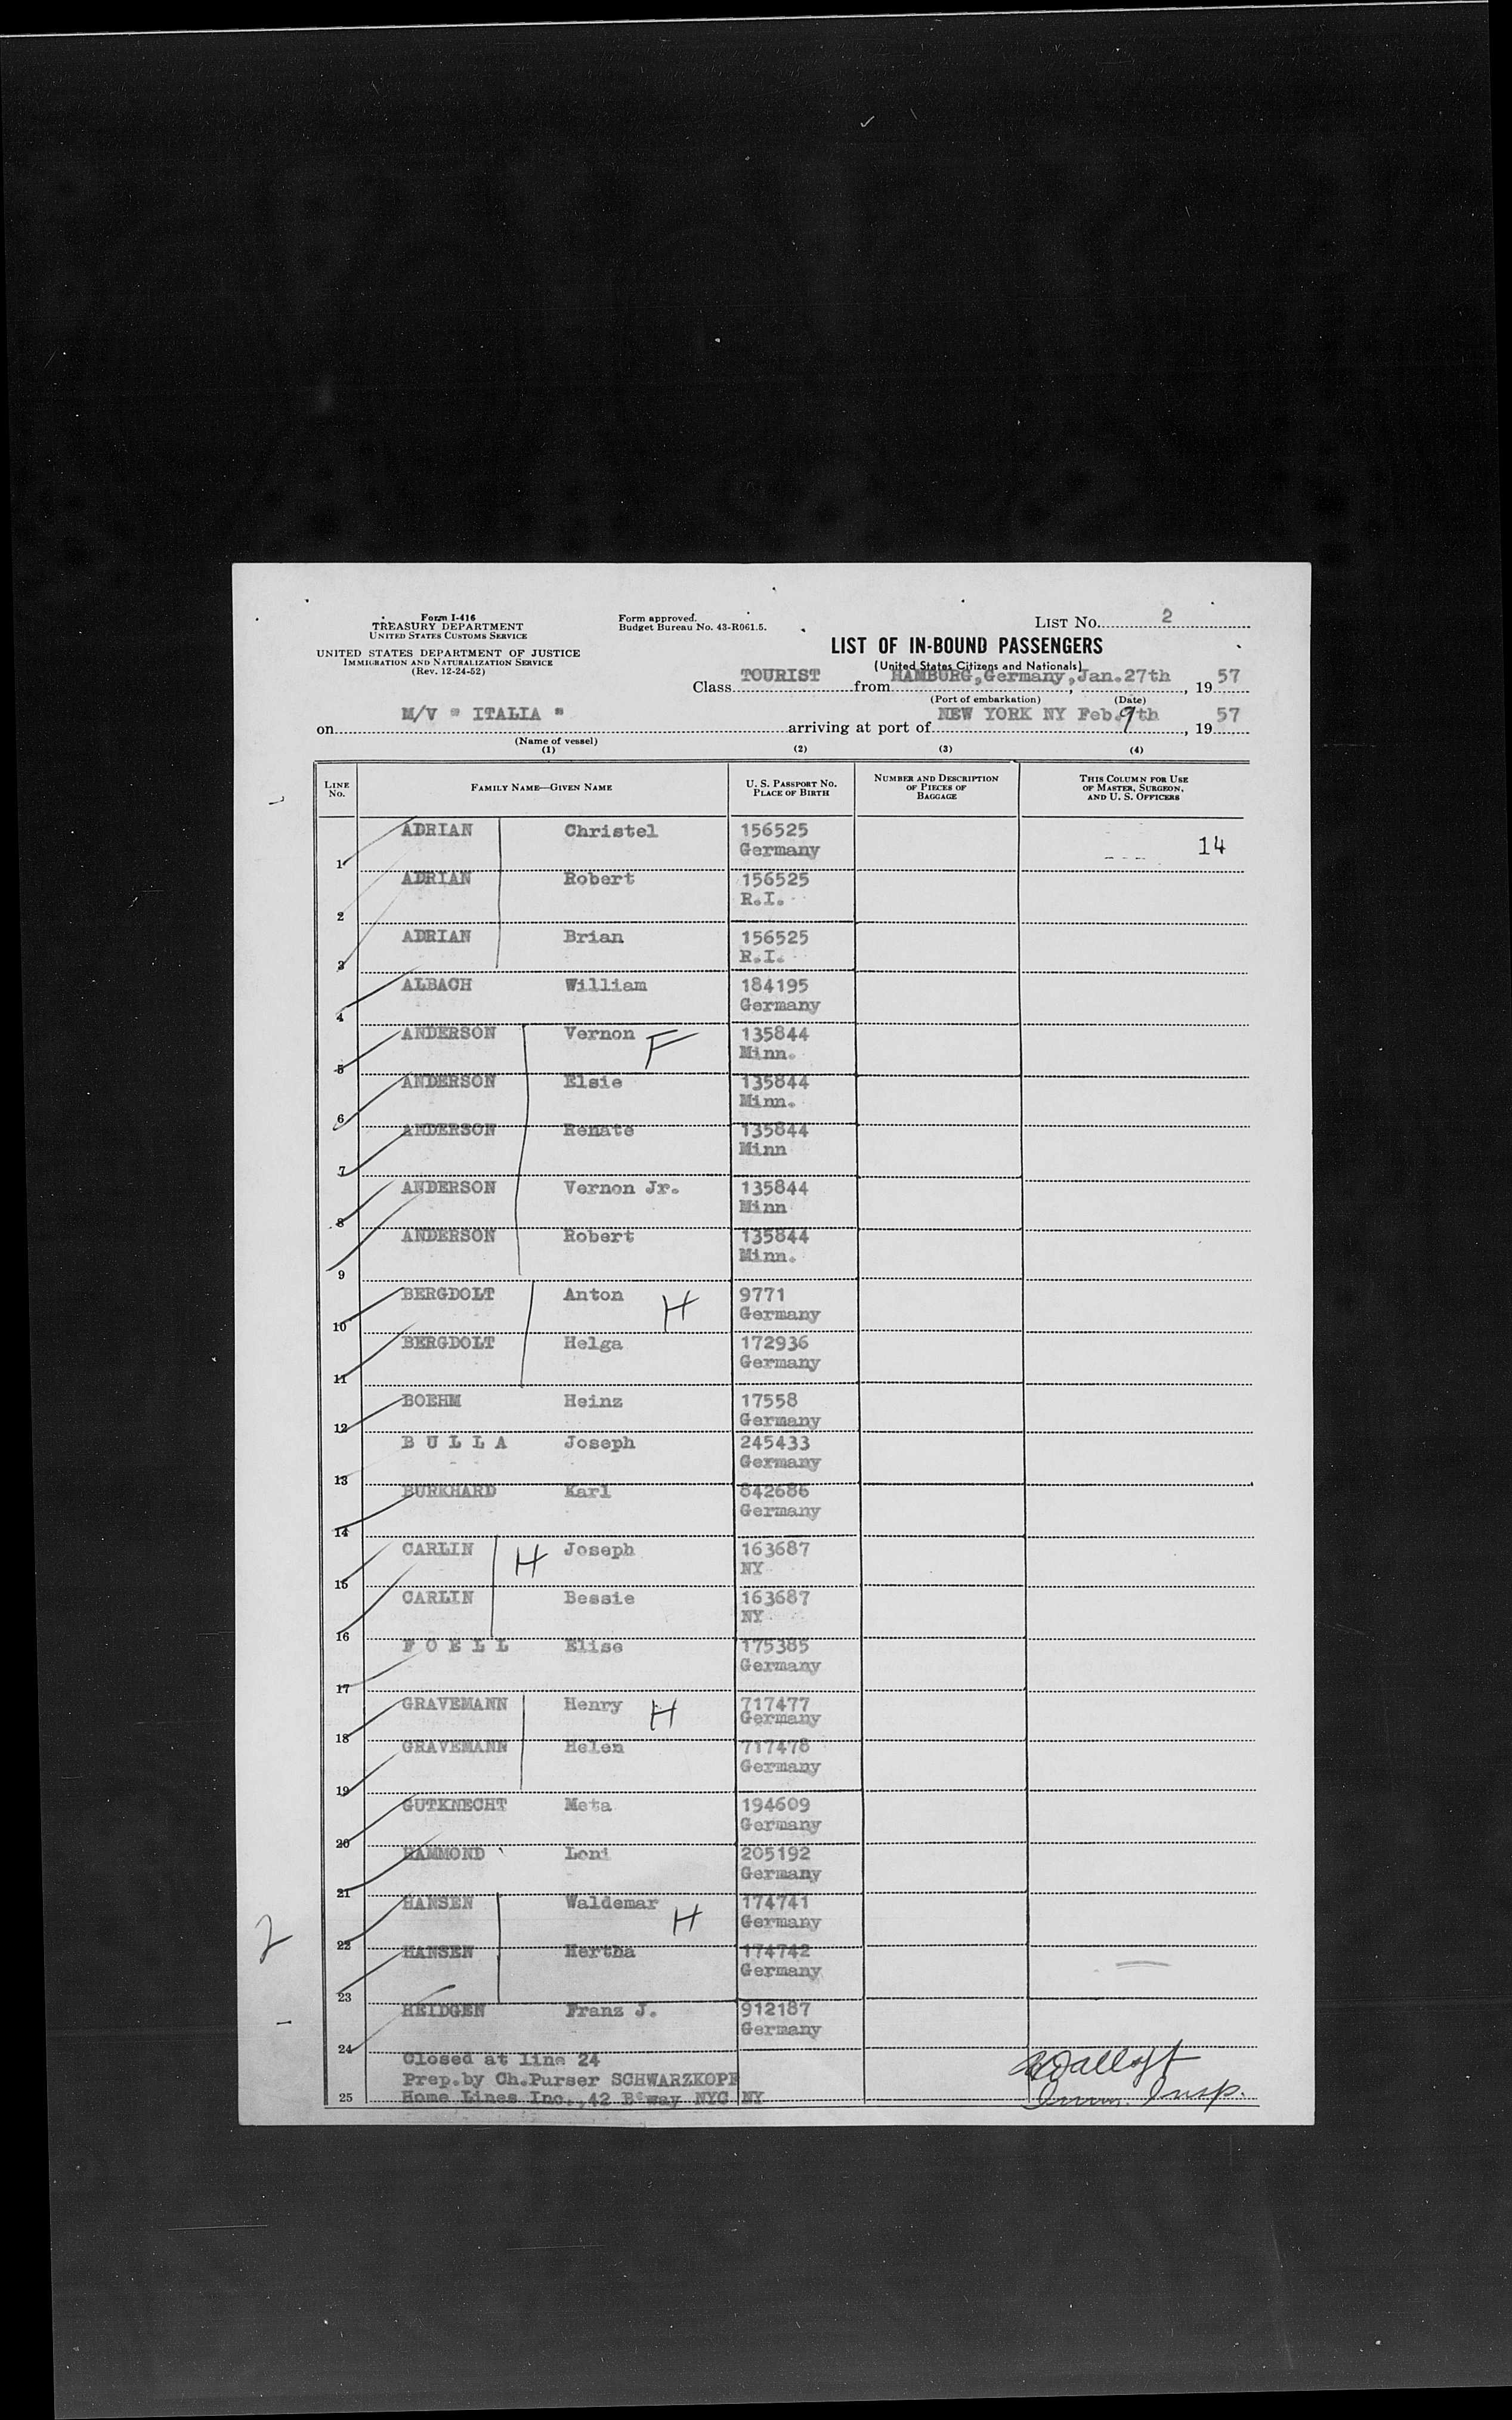 Form I-416
TREASURY DEPARTMENT
UNITED STATES CUSTOMS SERVICE
UNITED STATES DEPARTMENT OF JUSTICE
IMMIGRATION AND NATURALIZATION SERVICE
(Rev. 12-24-52)
Form approved.
Budget Bureau No. 43-R061.5.
LIST NO. 2
LIST OF IN-BOUND PASSENGERS
(United States Citizens and Nationals)
Class TOURIST from HAMBURG, Germany, Jan. 27th, 19 57
(Port of embarkation) (Date)
on M/V " ITALIA " arriving at port of NEW YORK NY Feb. 9th, 19 57
(Name of vessel)
(1) (2) (3) (4)
LINE NO. FAMILY NAME—GIVEN NAME U. S. PASSPORT NO. PLACE OF BIRTH NUMBER AND DESCRIPTION OF PIECES OF BAGGAGE THIS COLUMN FOR USE OF MASTER, SURGEON, AND U. S. OFFICERS
1 ADRIAN Christel 156525 Germany 14
2 ADRIAN Robert 156525 R.I.
3 ADRIAN Brian 156525 R.I.
4 ALBACH William 184195 Germany
5 ANDERSON Vernon F 135844 Minn.
6 ANDERSON Elsie 135844 Minn.
7 ANDERSON Renate 135844 Minn
8 ANDERSON Vernon Jr. 135844 Minn
9 ANDERSON Robert 135844 Minn.
10 BERGDOLT Anton H 9771 Germany
11 BERGDOLT Helga 172936 Germany
12 BOEHM Heinz 17558 Germany
13 B U L L A Joseph 245433 Germany
14 BURKHARD Karl 842686 Germany
15 CARLIN H Joseph 163687 NY
16 CARLIN Bessie 163687 NY
17 F O E L L Elise 175385 Germany
18 GRAVEMANN Henry H 717477 Germany
19 GRAVEMANN Helen 717478 Germany
20 GUTKNECHT Meta 194609 Germany
21 HAMMOND Loni 205192 Germany
22 HANSEN Waldemar H 174741 Germany
2
23 HANSEN Hertha 174742 Germany
24 HEIDGEN Franz J. 912187 Germany
Closed at line 24
Prep.by Ch.Purser SCHWARZKOPF
25 Home Lines Inc.,42 B'way NYC NY
Imm. Insp.